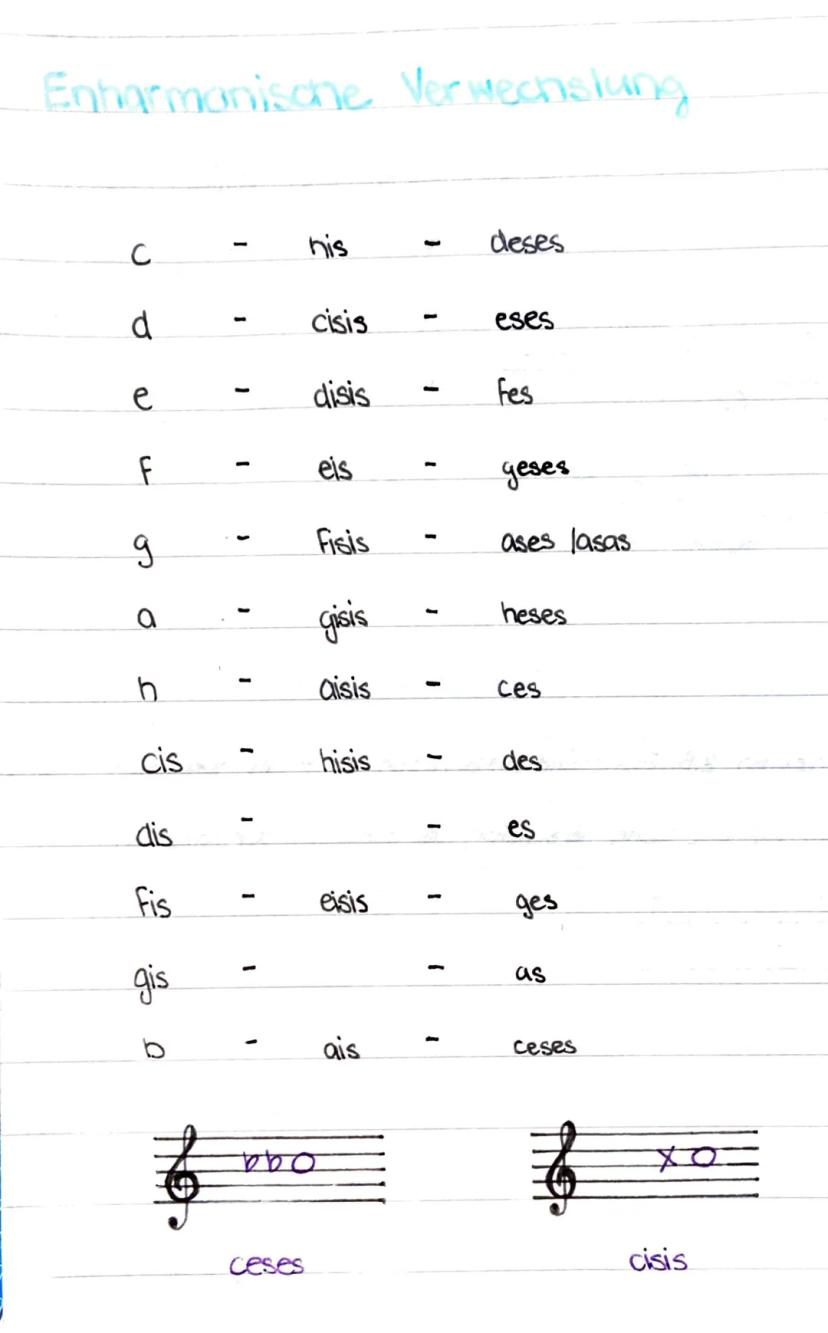 Enharmonische Verwechslung
c - his - deses
d - cisis - eses
e - disis - fes
f - eis - geses
g - fisis - ases /asas
a - gisis - heses
h - aisis - ces
cis - hisis - des
dis - - es
fis - eisis - ges
gis - - as
b - ais - ceses
bb x
ceses cisis